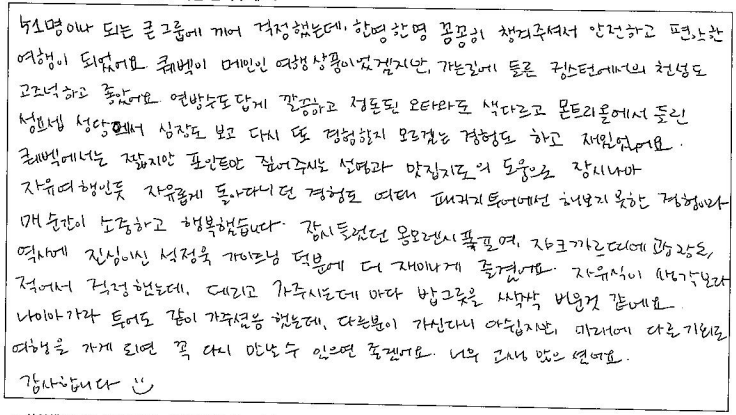 51명이나 되는 큰 그룹에 끼어 걱정했는데, 한명한명 꼼꼼히 챙겨주셔서 안전하고 편안한
여행이 되었어요. 퀘벡이 메인인 여행상품이었겠지만, 가는길에 들른 킹스턴에서의 천섬도
고즈넉하고 좋았어요. 연방수도답게 깔끔하고 정돈된 오타와도 색다르고 몬트리올에서 들린
성요셉 성당에서 심장도 보고 다시 또 경험할지 모르겠는 경험도 하고 재밌었어요.
퀘벡에서는 짧지만 포인트만 짚어주시는 설명과 맛집지도의 도움으로 잠시나마
자유여행인듯 자유롭게 돌아다니던 경험도 여태 패키지투어에선 해보지 못한 경험이라
매순간이 소중하고 행복했습니다. 잠시 들렀던 몽모렌시 폭포며, 쟈크까르띠에 광장도,
역사에 진심이신 석정욱 가이드님 덕분에 더 재미나게 즐겼어요. 자유식이 생각보다
적어서 걱정했는데, 데리고 가주시는데 마다 밥그릇을 싹싹 비운것 같네요.
나이아가라 투어도 같이 가주셨음 했는데, 다른분이 가신다니 아쉽지만, 미래에 다른 기회로
여행을 가게 되면 꼭 다시 만날수 있으면 좋겠어요. 너무 고생 많으셨어요.
감사합니다